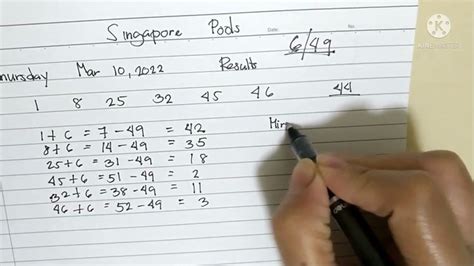 Singapore Pods
6/49
Thursday Mar 10, 2022 Results
1 8 25 32 45 46 44
1+6 = 7-49 = 42
8+6 = 14-49 = 35
25+6 = 31-49 = 18
45+6 = 51-49 = 2
32+6 = 38-49 = 11
46+6 = 52-49 = 3
Mir